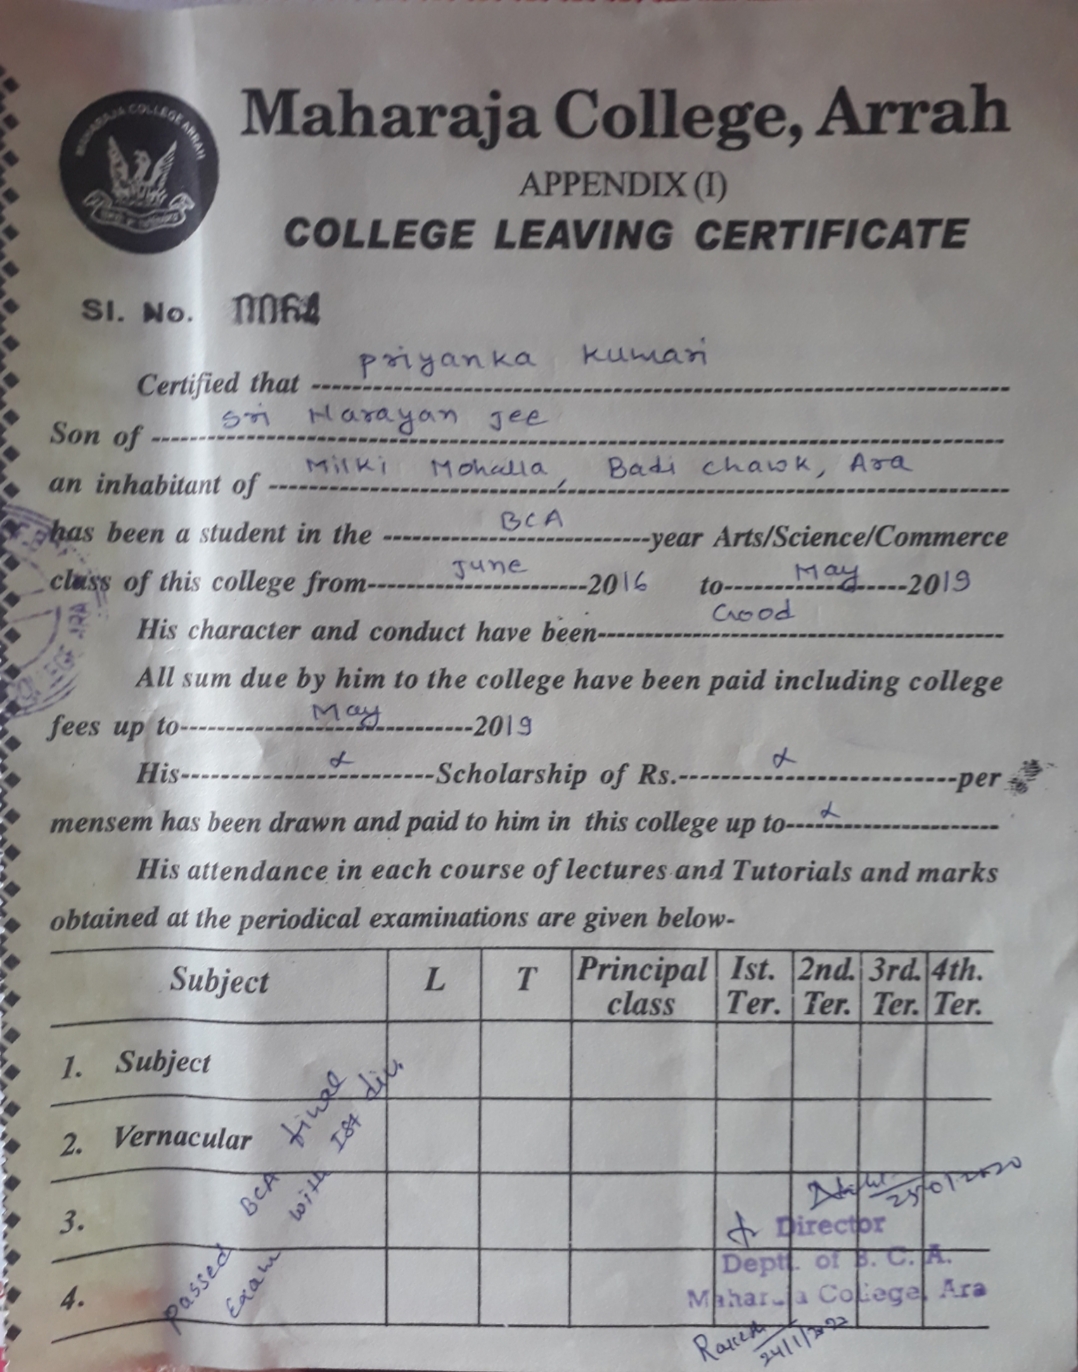 MAHARAJA COLLEGE ARRAH
Maharaja College, Arrah
APPENDIX (I)
COLLEGE LEAVING CERTIFICATE
Sl. No. 0064
Certified that Priyanka Kumari
Son of Sri Narayan Jee
an inhabitant of Milki Mohalla, Badi Chawk, Ara
has been a student in the BCA year Arts/Science/Commerce
class of this college from June 2016 to May 2019
His character and conduct have been Good
All sum due by him to the college have been paid including college
fees up to May 2019
His Scholarship of Rs. per
mensem has been drawn and paid to him in this college up to
His attendance in each course of lectures and Tutorials and marks
obtained at the periodical examinations are given below-
Subject L T Principal class Ist. Ter. 2nd. Ter. 3rd. Ter. 4th. Ter.
1. Subject
2. Vernacular
3.
4.
Passed BCA final
Exam with Ist div.
25/01/2020
Director
Deptt. of B. C. A.
Maharaja College, Ara
24/1/2020